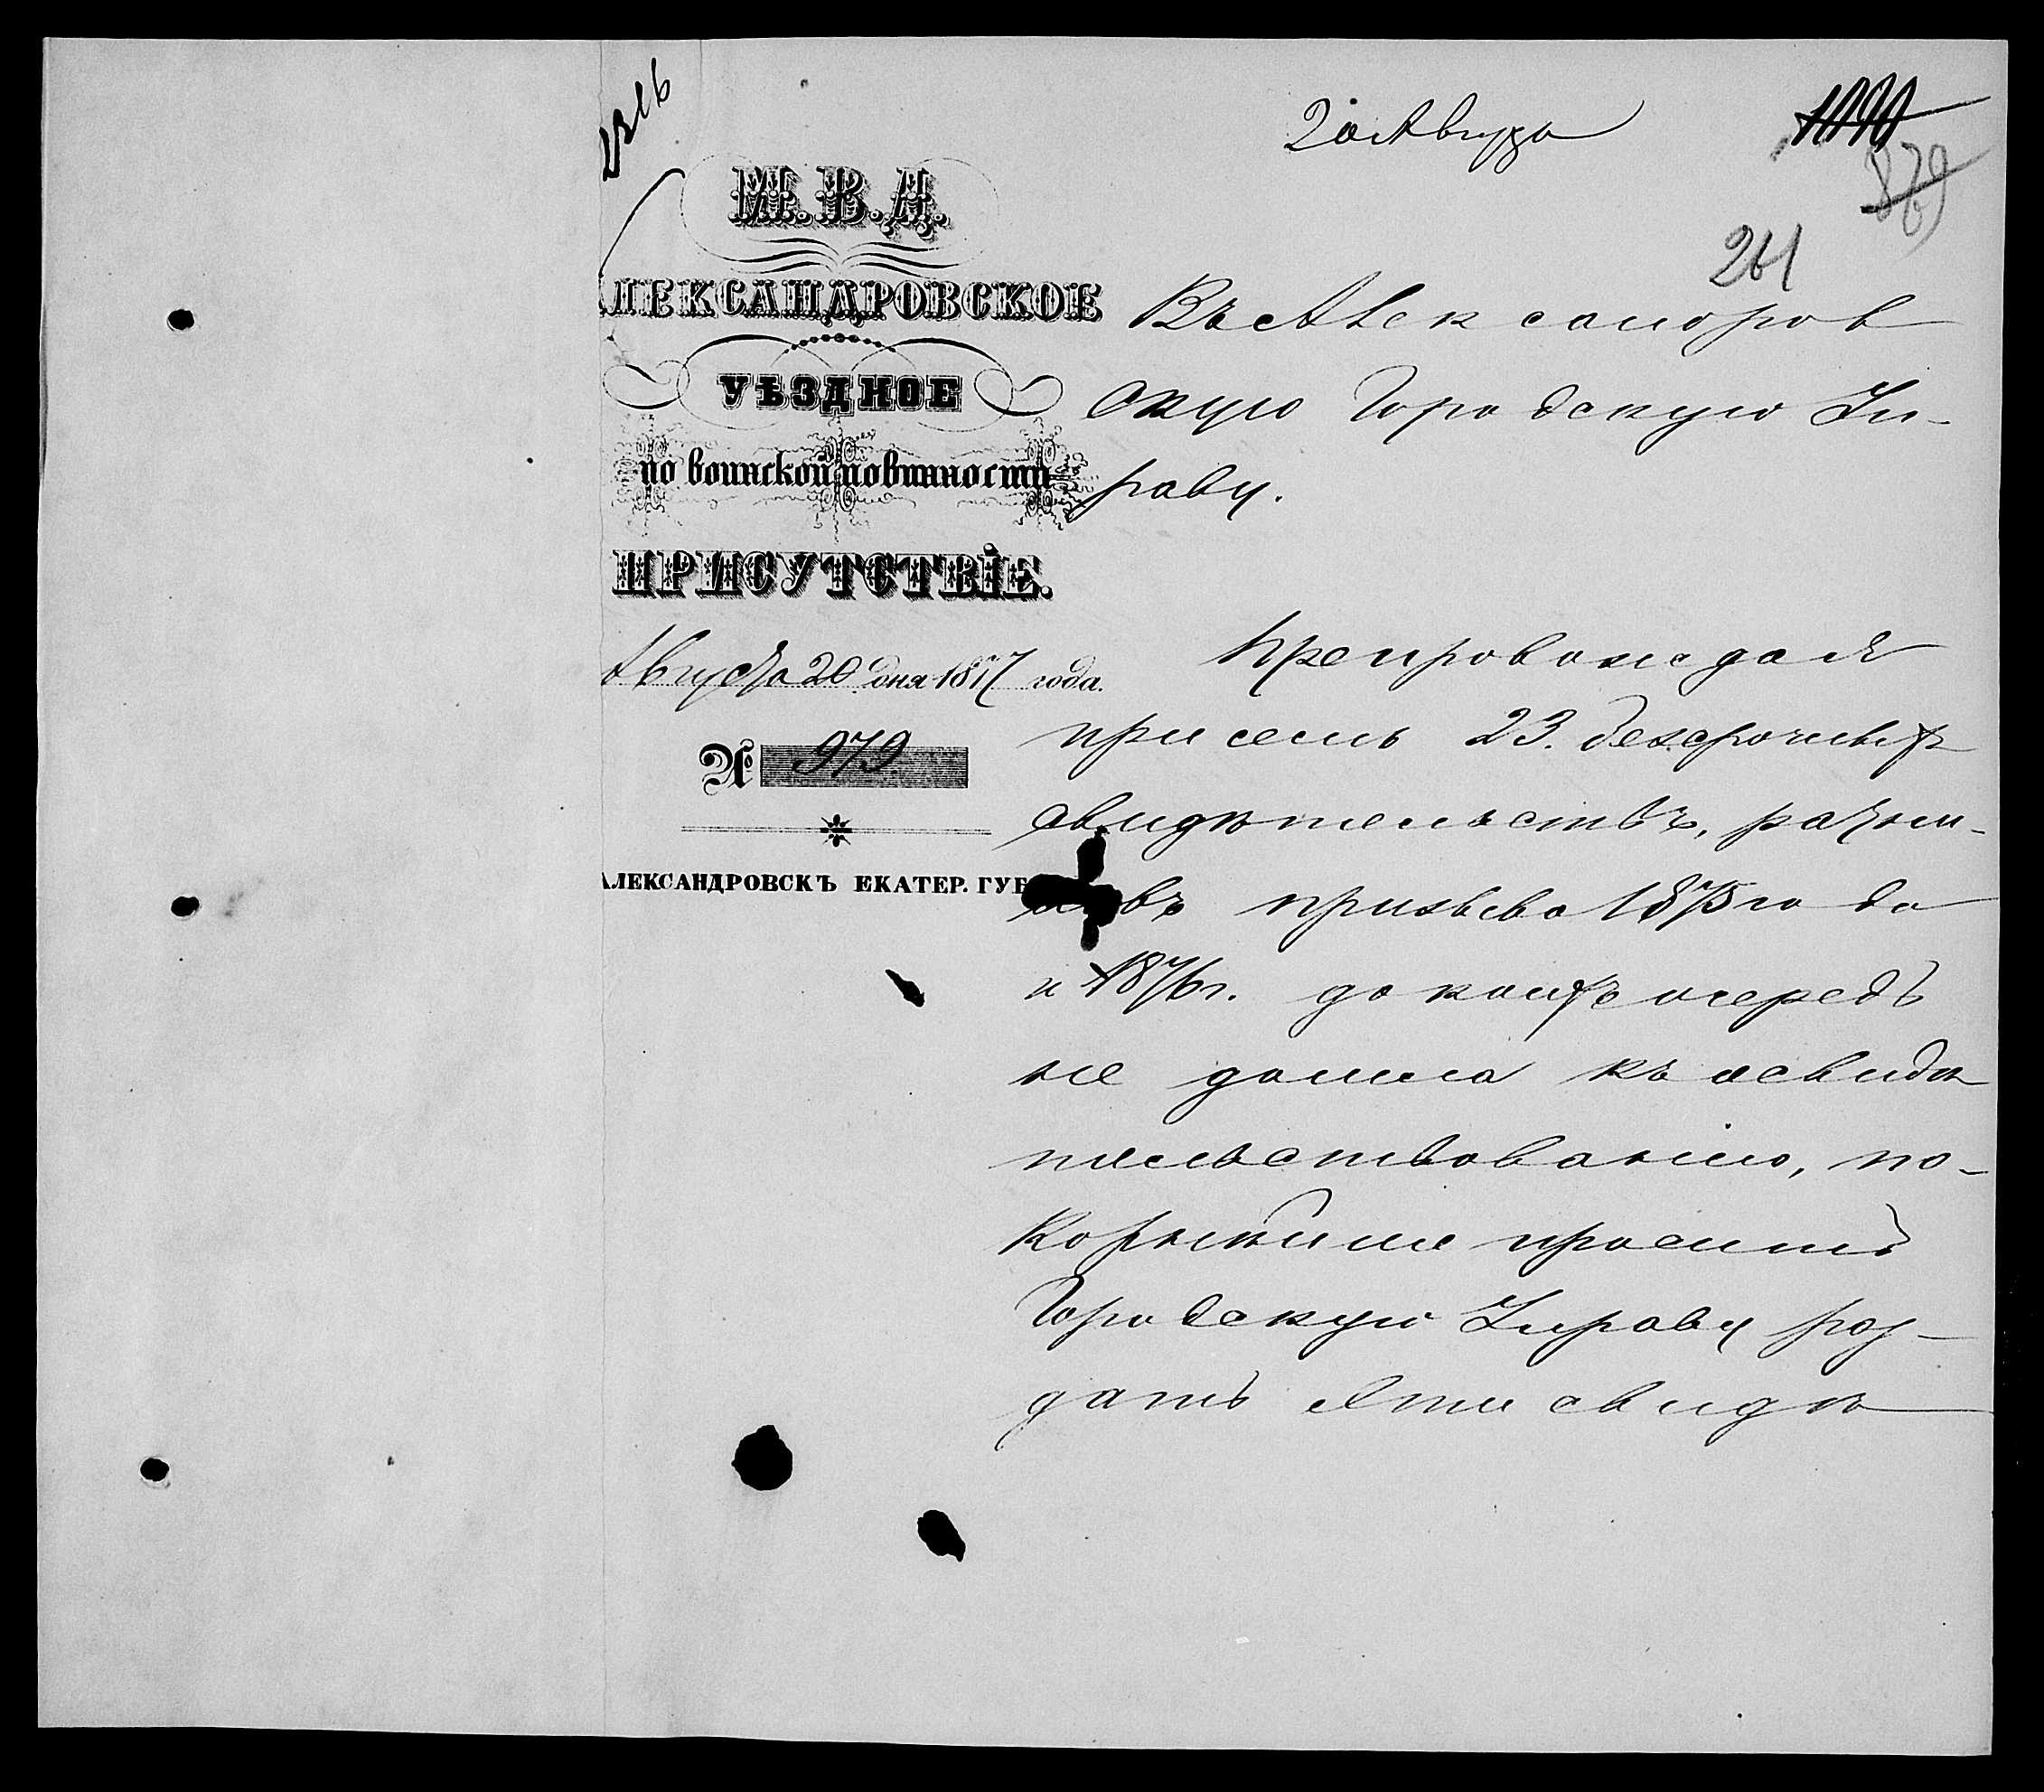 20 Августа
261
М. В. Д.
ЛЕКСАНДРОВСКОЕ
УѢЗДНОЕ
по воинской повинности
ПРИСУТСТВІЕ.
Августа 20 дня 1877 года.
№ 979
ЛЕКСАНДРОВСКЪ ЕКАТЕР. ГУБ
Въ Александров
скую Городскую Уп-
раву.
Препровождая
при семъ 23. безсрочныхъ
свидѣтельствъ, ратни-
ковъ призыва 1875 го да
и 1876 г. до коихъ очередь
не дошла къ освидѣ
тельствованію, по-
корнѣйше проситъ
Городскую Управу роз-
дать эти свидѣ